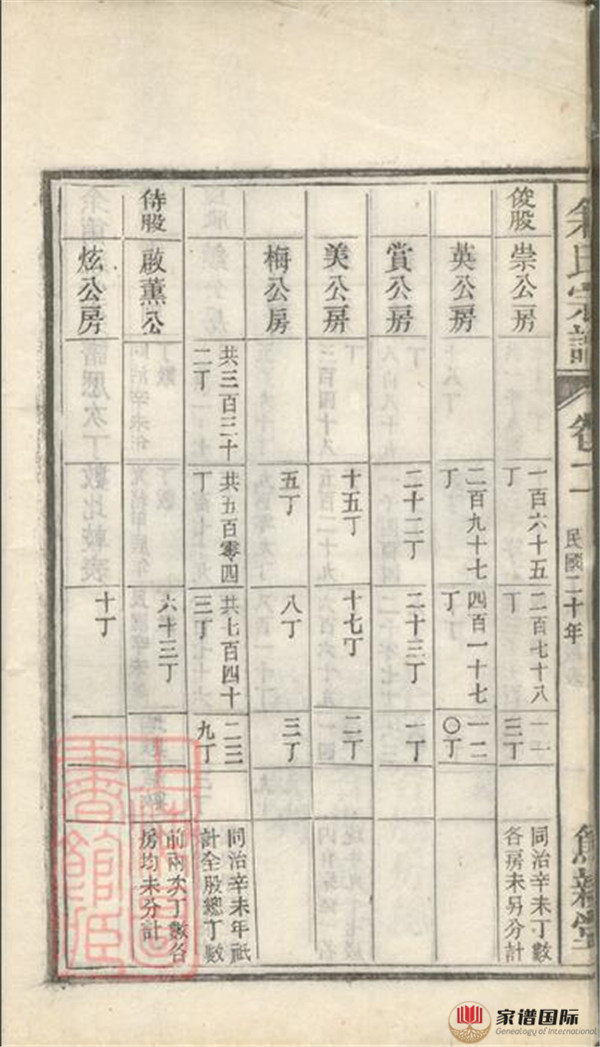 氏宗譜
卷
民國二十年
堂
俊股
崇公房
一百六十五
丁
二百七十八
丁
一一
三丁
同治辛未丁數
各房未另分計
英公房
二百九十七
丁
四百一十七
丁
一二
〇丁
賞公房
二十二丁
二十三丁
一丁
美公房
十五丁
十七丁
二丁
梅公房
五丁
八丁
三丁
共三百三十
二丁
共五百零四
丁
共七百四十
三丁
二三
九丁
同治辛未年祇
計全股總丁數
侍股
啟薰公
六十三丁
前兩次丁數各
房均未分計
炫公房
十丁
家谱国际
Genealogy of International